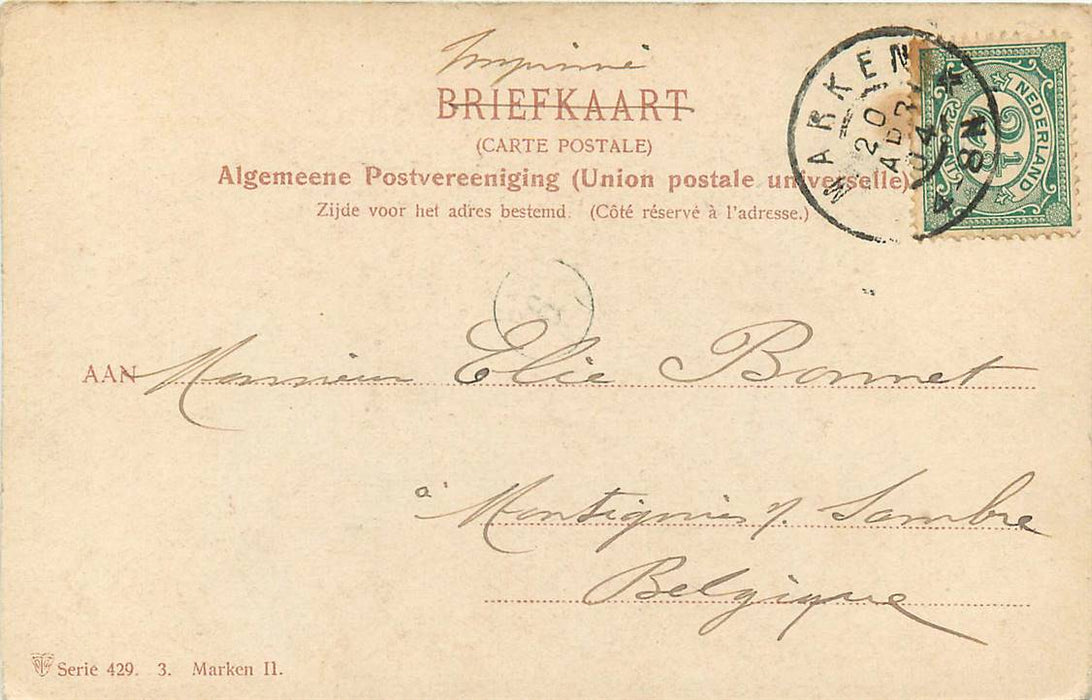 Imprimé
BRIEFKAART
(CARTE POSTALE)
Algemeene Postvereeniging (Union postale universelle)
Zijde voor het adres bestemd. (Côté réservé à l'adresse.)
MARKEN
20
APR
04
4-8N
NEDERLAND
2½
AAN Monsieur Elie Bonnet
à Montignies s/. Sambre
Belgique
Serie 429. 3. Marken II.